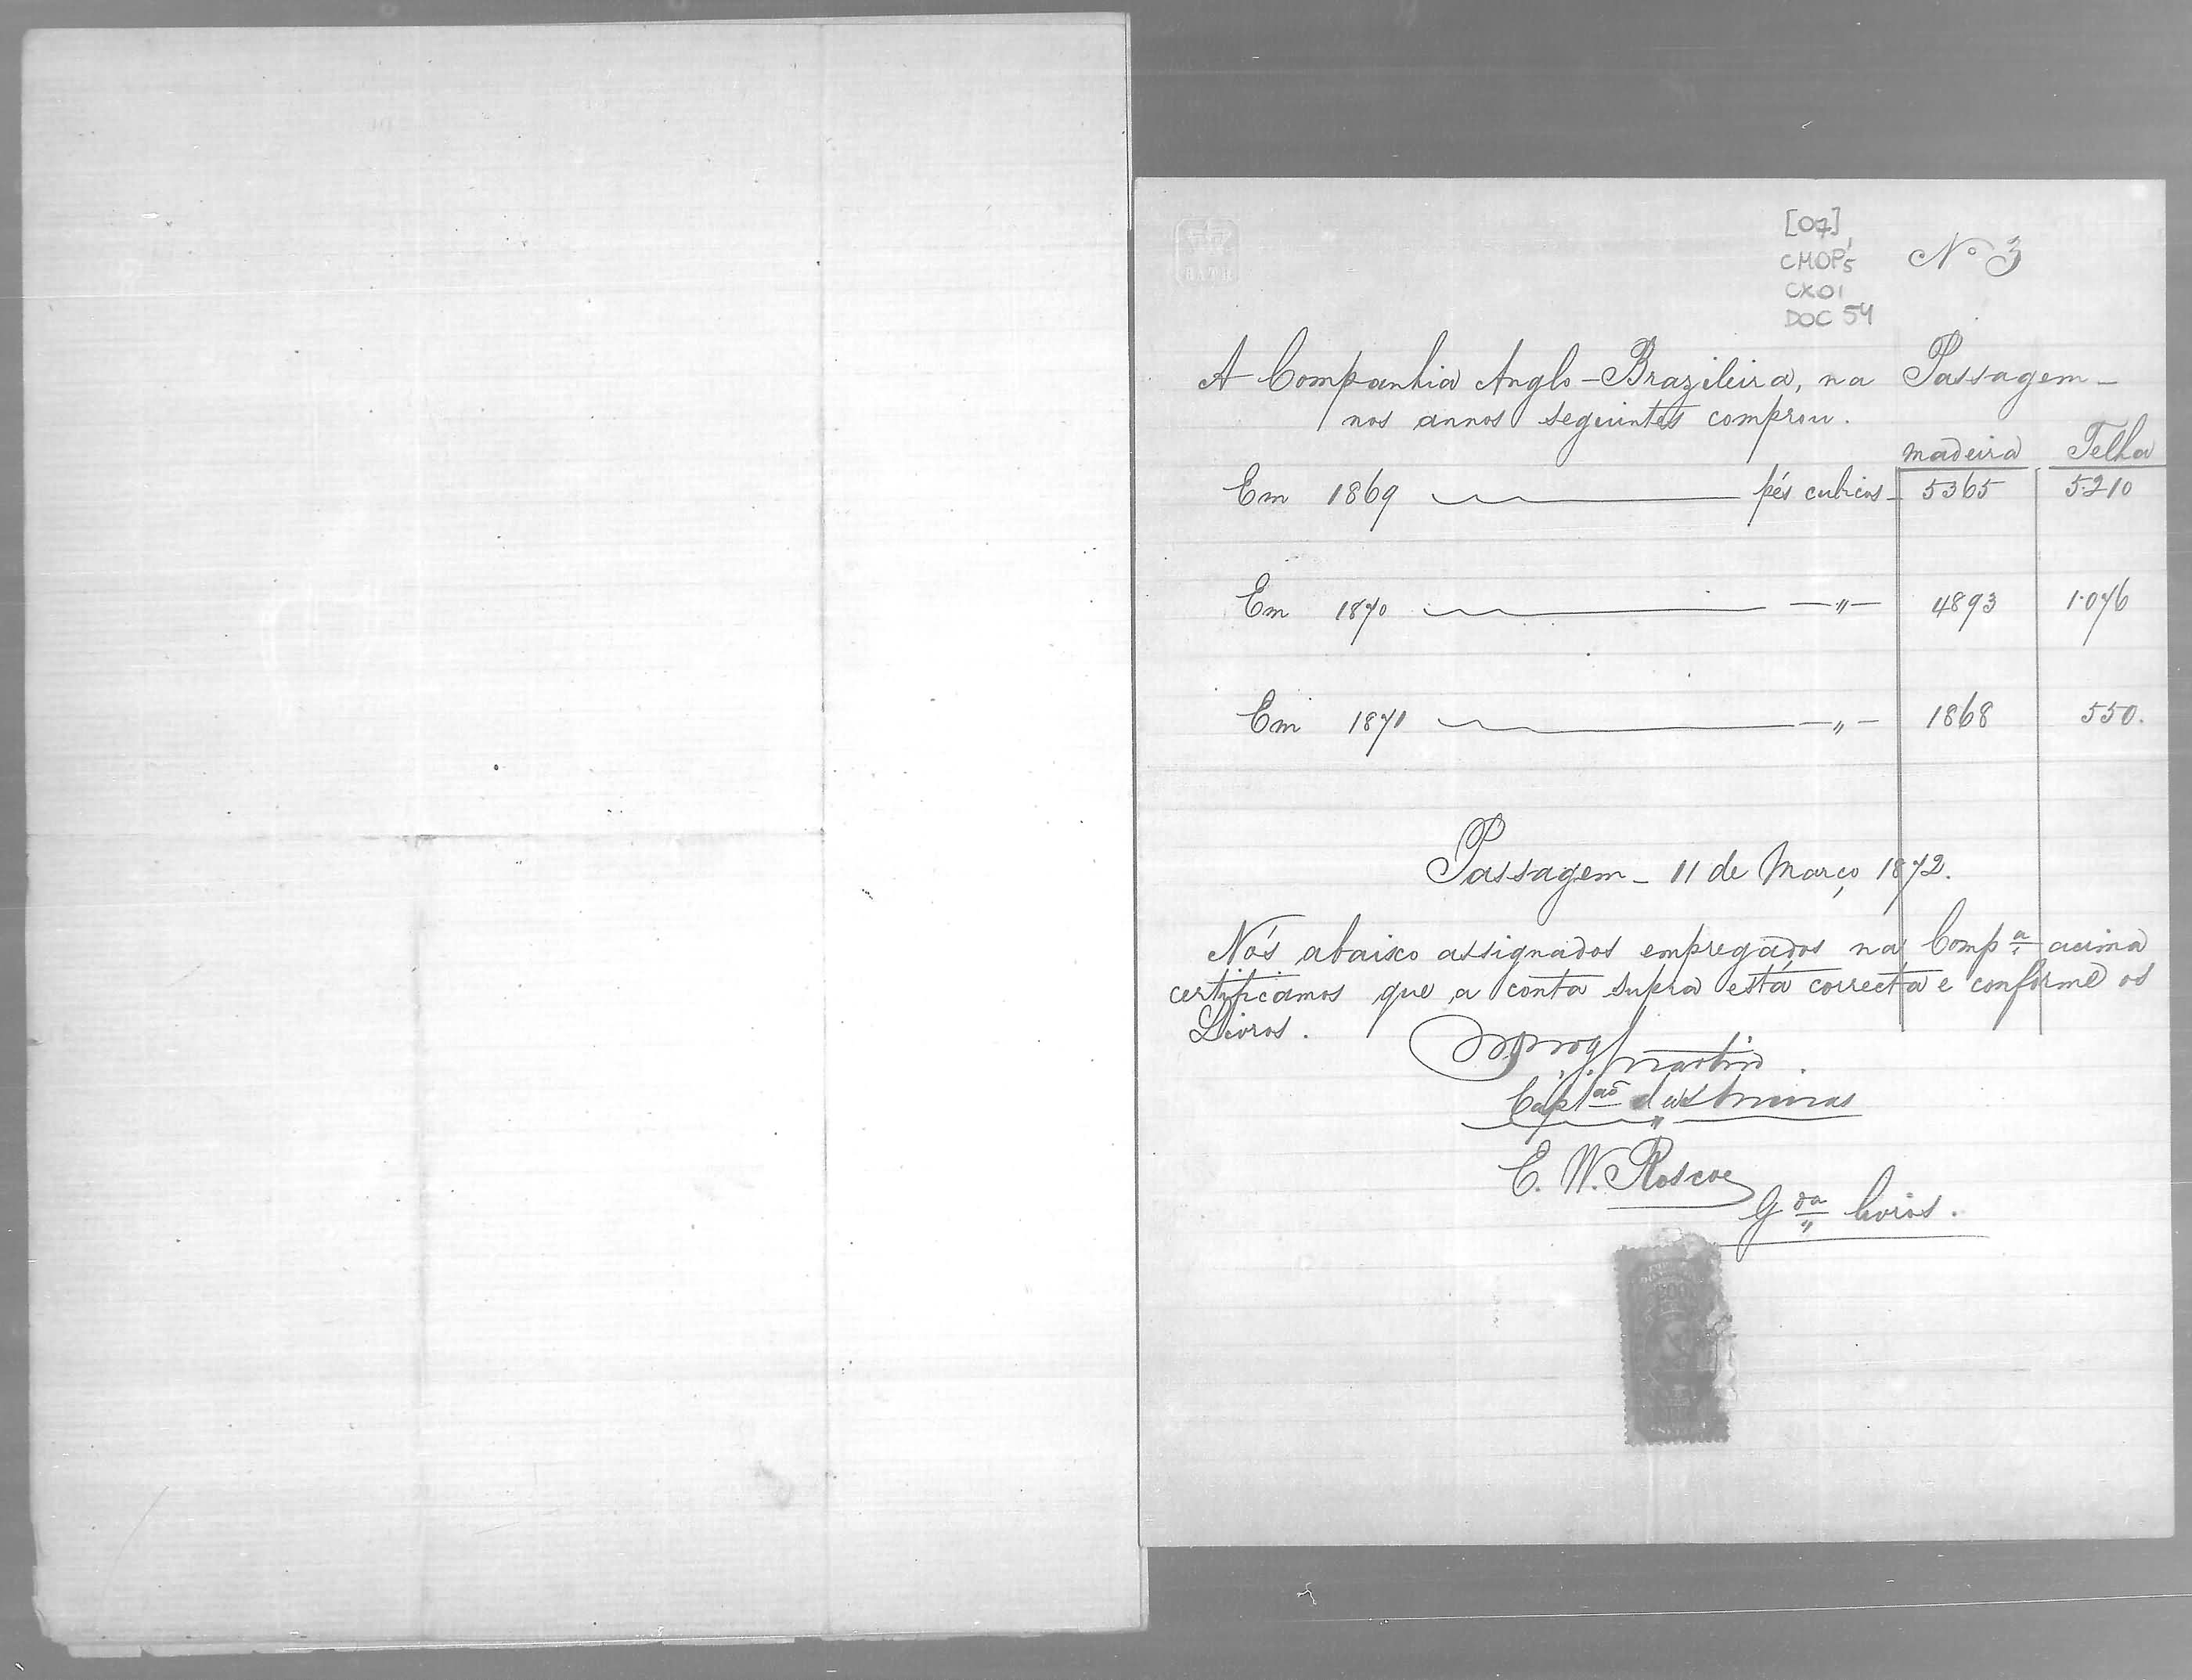 [07]
CMOP5
CX01
DOC 54
Nº 3
BATH
A Companhia Anglo-Brazileira, na Passagem –
nos annos seguintes comprou.
madeira Telha
Em 1869 pés cubicos – 5365 5.210
Em 1870 — " — 4893 1.076
Em 1871 — " — 1868 550.
Passagem – 11 de Março 1872.
Nós abaixo assignados empregados na Compª acima
certificamos que a conta supra está correcta e conforme os
Livros.
Martin.
Capᵃᵒ das minas
E. W. Roscoe
Gᵈᵃ livros.